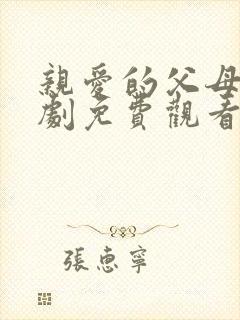 親愛的父母
劇免費觀看
張惠寧